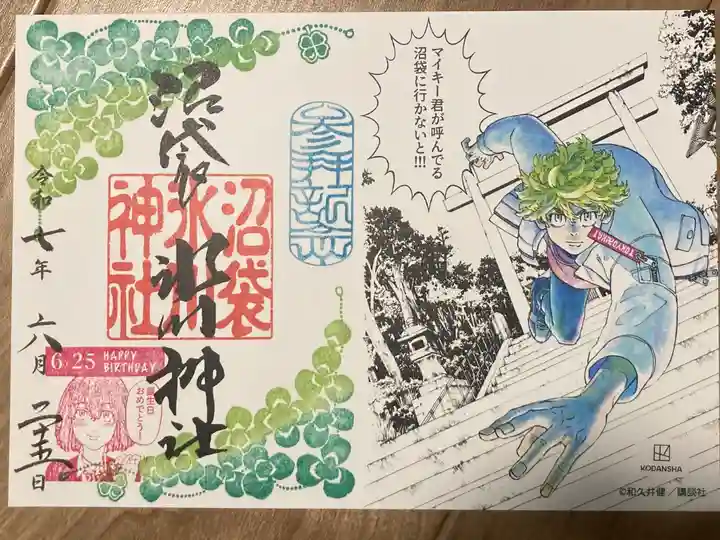 沼袋 氷川神社
沼袋
氷川
神社
参拝記念
令和七年 六月 二十五日
6/25 HAPPY
BIRTHDAY
誕生日
おめでとう
マイキー君が呼んでる
沼袋に行かないと!!!
KODANSHA
©和久井健／講談社